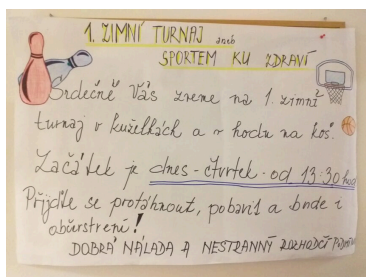 1. ZIMNÍ TURNAJ aneb
SPORTEM KU ZDRAVÍ
Srdečně Vás zveme na 1. zimní
turnaj v kuželkách a v hodu na koš.
Začátek je dnes - čtvrtek - od 13:30 hod
Přijďte se protáhnout, pobavit a bude i
občerstvení!
DOBRÁ NÁLADA A NESTRANNÝ ROZHODČÍ